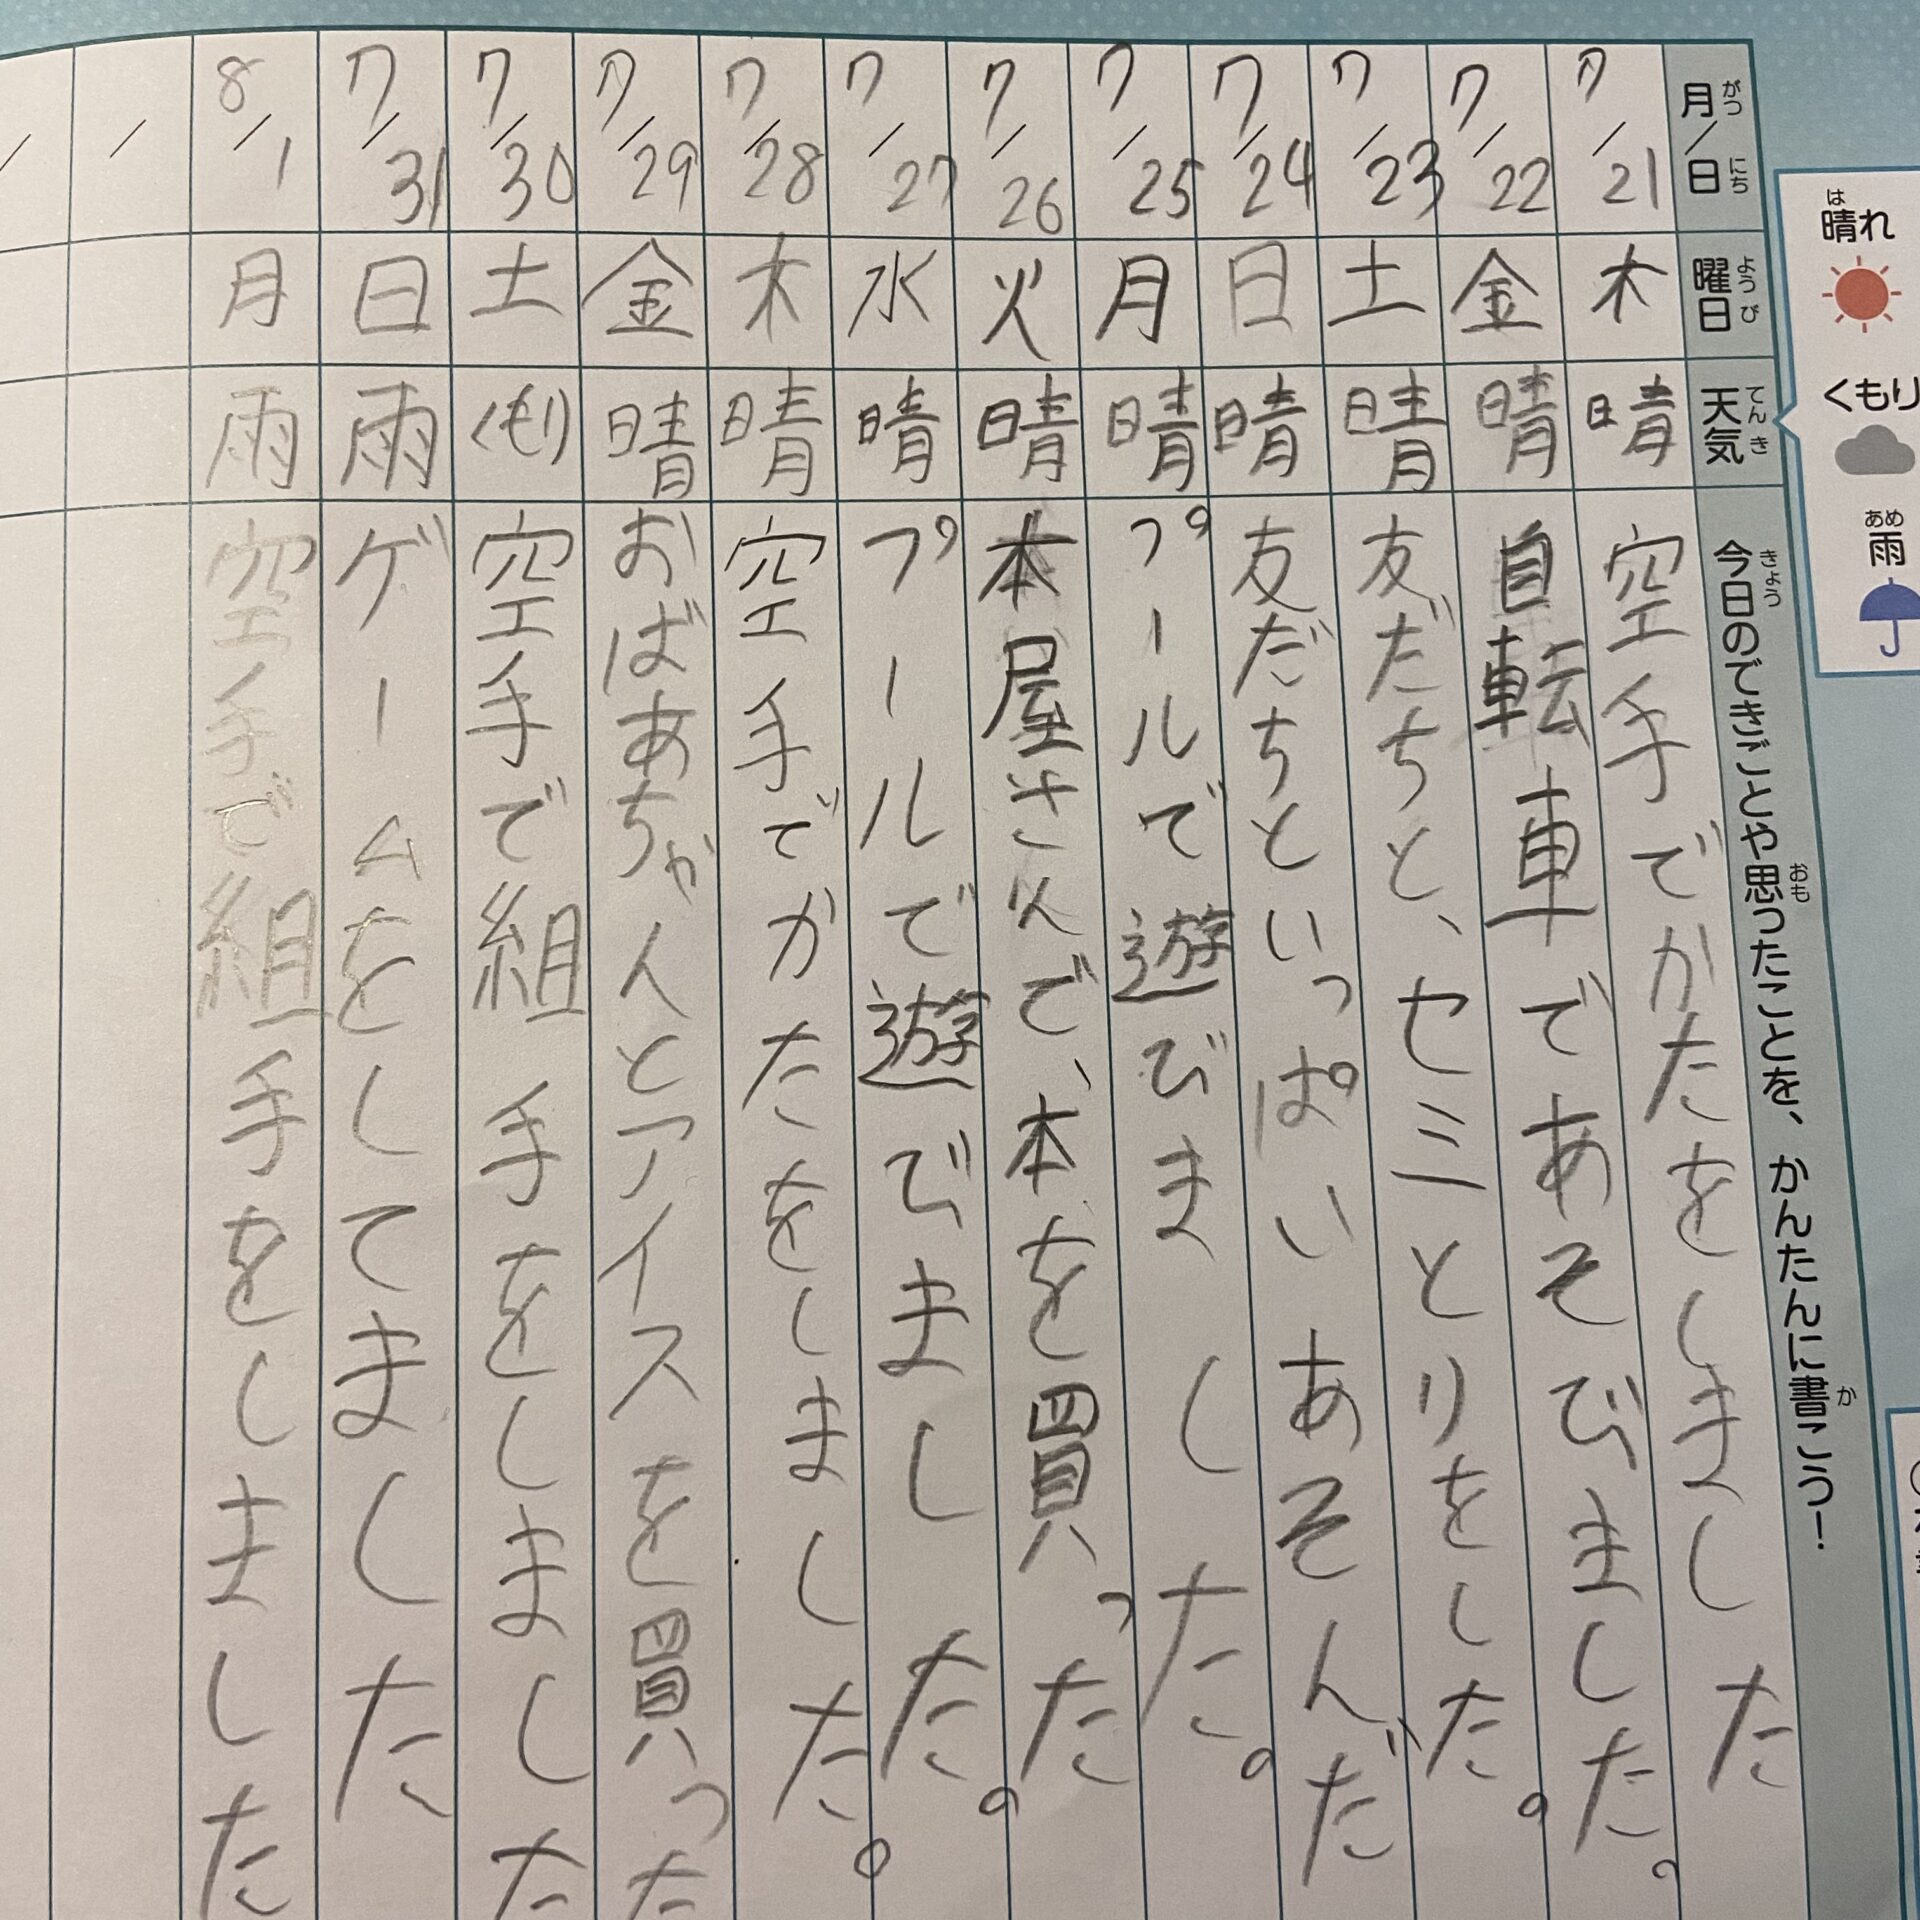 月/日 曜日 天気 今日のできごとや思ったことを、かんたんに書こう！
晴れ
くもり
雨
7/21 木 晴 空手でかたをしました
7/22 金 晴 自転車であそびました。
7/23 土 晴 友だちと、セミとりをした。
7/24 日 晴 友だちといっぱいあそんだ
7/25 月 晴 プールで遊びました。
7/26 火 晴 本屋さんで、本を買った
7/27 水 晴 プールで遊びました。
7/28 木 晴 空手でかたをしました。
7/29 金 晴 おばあちゃんとアイスを買った
7/30 土 くもり 空手で組手をしました
7/31 日 雨 ゲームをしてました
8/1 月 雨 空手で組手をしました